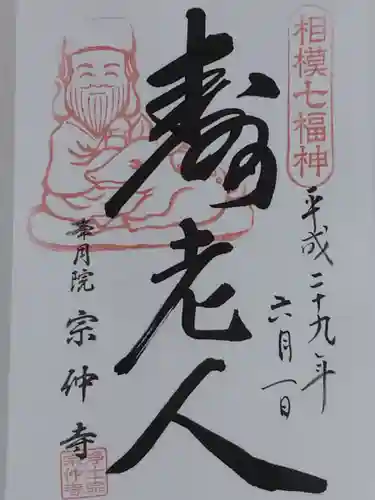 相模七福神
平成二十九年
六月一日
寿老人
峯月院
宗仲寺